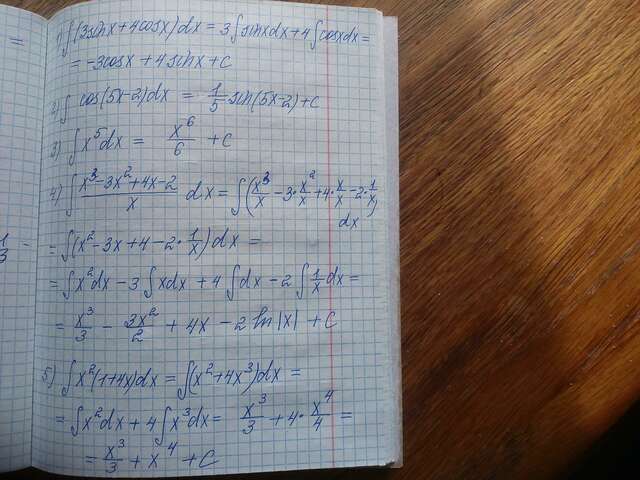 1) ∫(3sinx+4cosx)dx = 3∫sinxdx+4∫cosxdx=
= -3cosx + 4sinx + C
2) ∫ cos(5x-2)dx = 1/5 sin(5x-2)+C
3) ∫ x^5 dx = x^6/6 + C
4) ∫ (x^3-3x^2+4x-2)/x dx = ∫(x^3/x - 3·x^2/x + 4·x/x - 2·1/x)
dx
= ∫(x^2-3x+4-2·1/x)dx =
= ∫x^2dx - 3∫xdx + 4∫dx - 2∫1/x dx =
= x^3/3 - 3x^2/2 + 4x - 2 ln|x| + C
5) ∫x^2(1+4x)dx = ∫(x^2+4x^3)dx =
= ∫x^2dx + 4∫x^3dx = x^3/3 + 4·x^4/4 =
= x^3/3 + x^4 + C